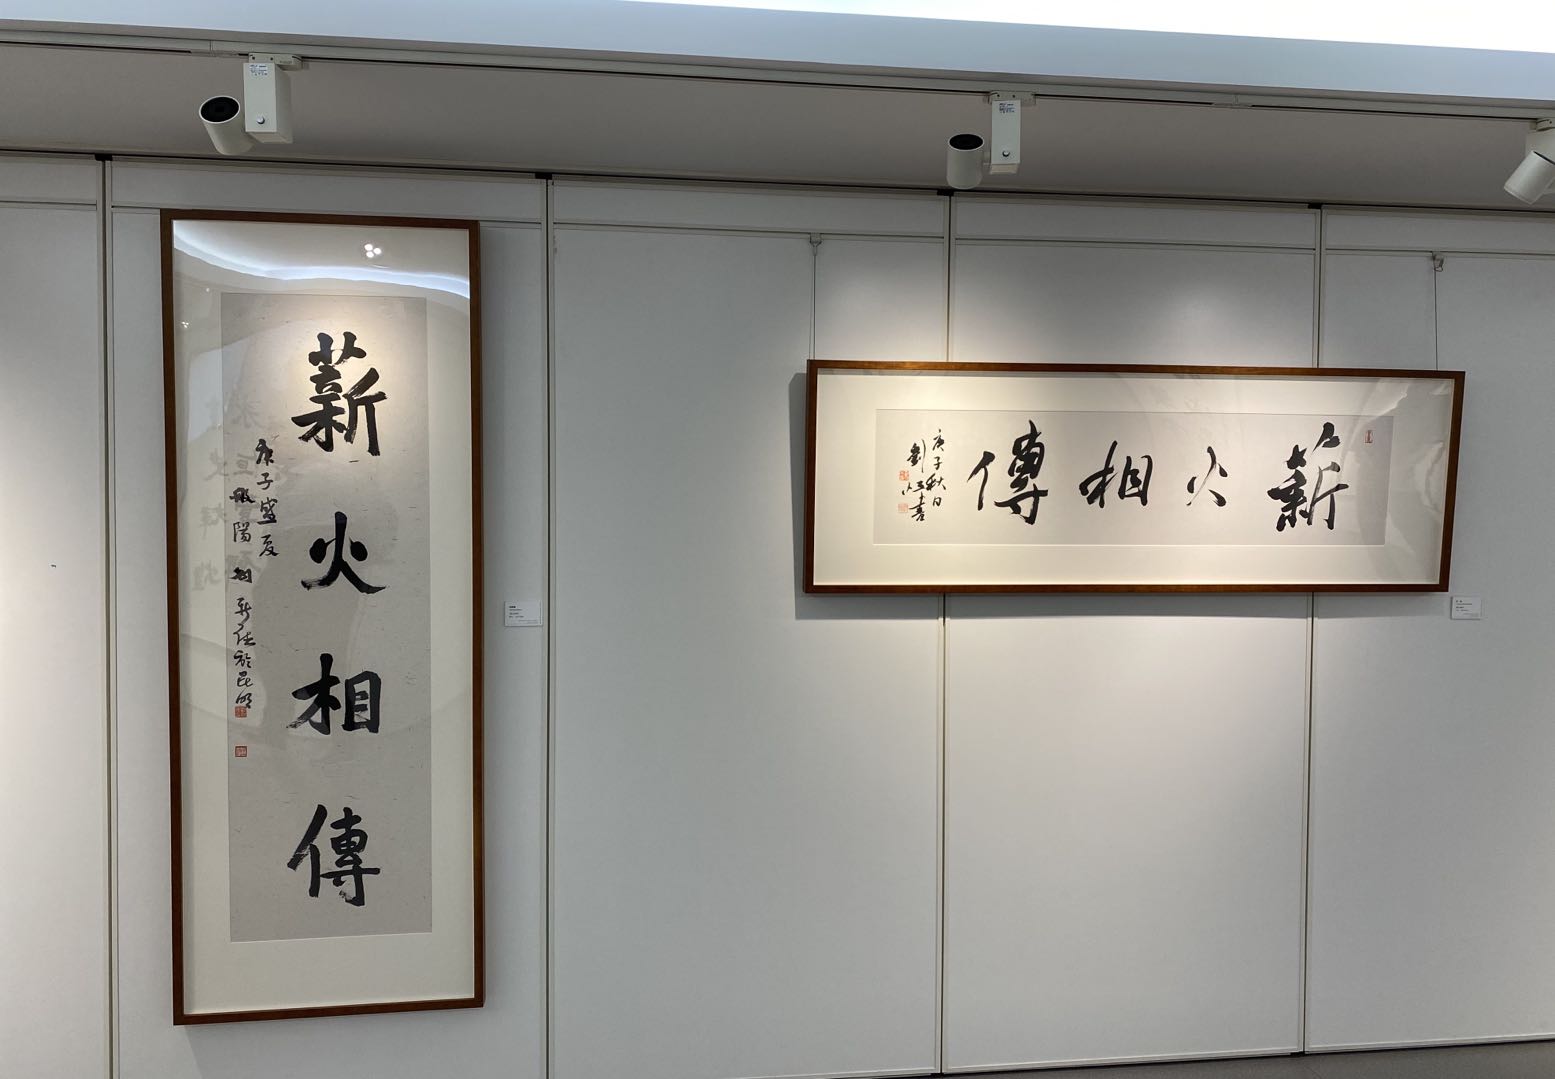 薪火相傳
庚子盛夏
陽 於昆明
薪火相傳
庚子秋日
劉 書